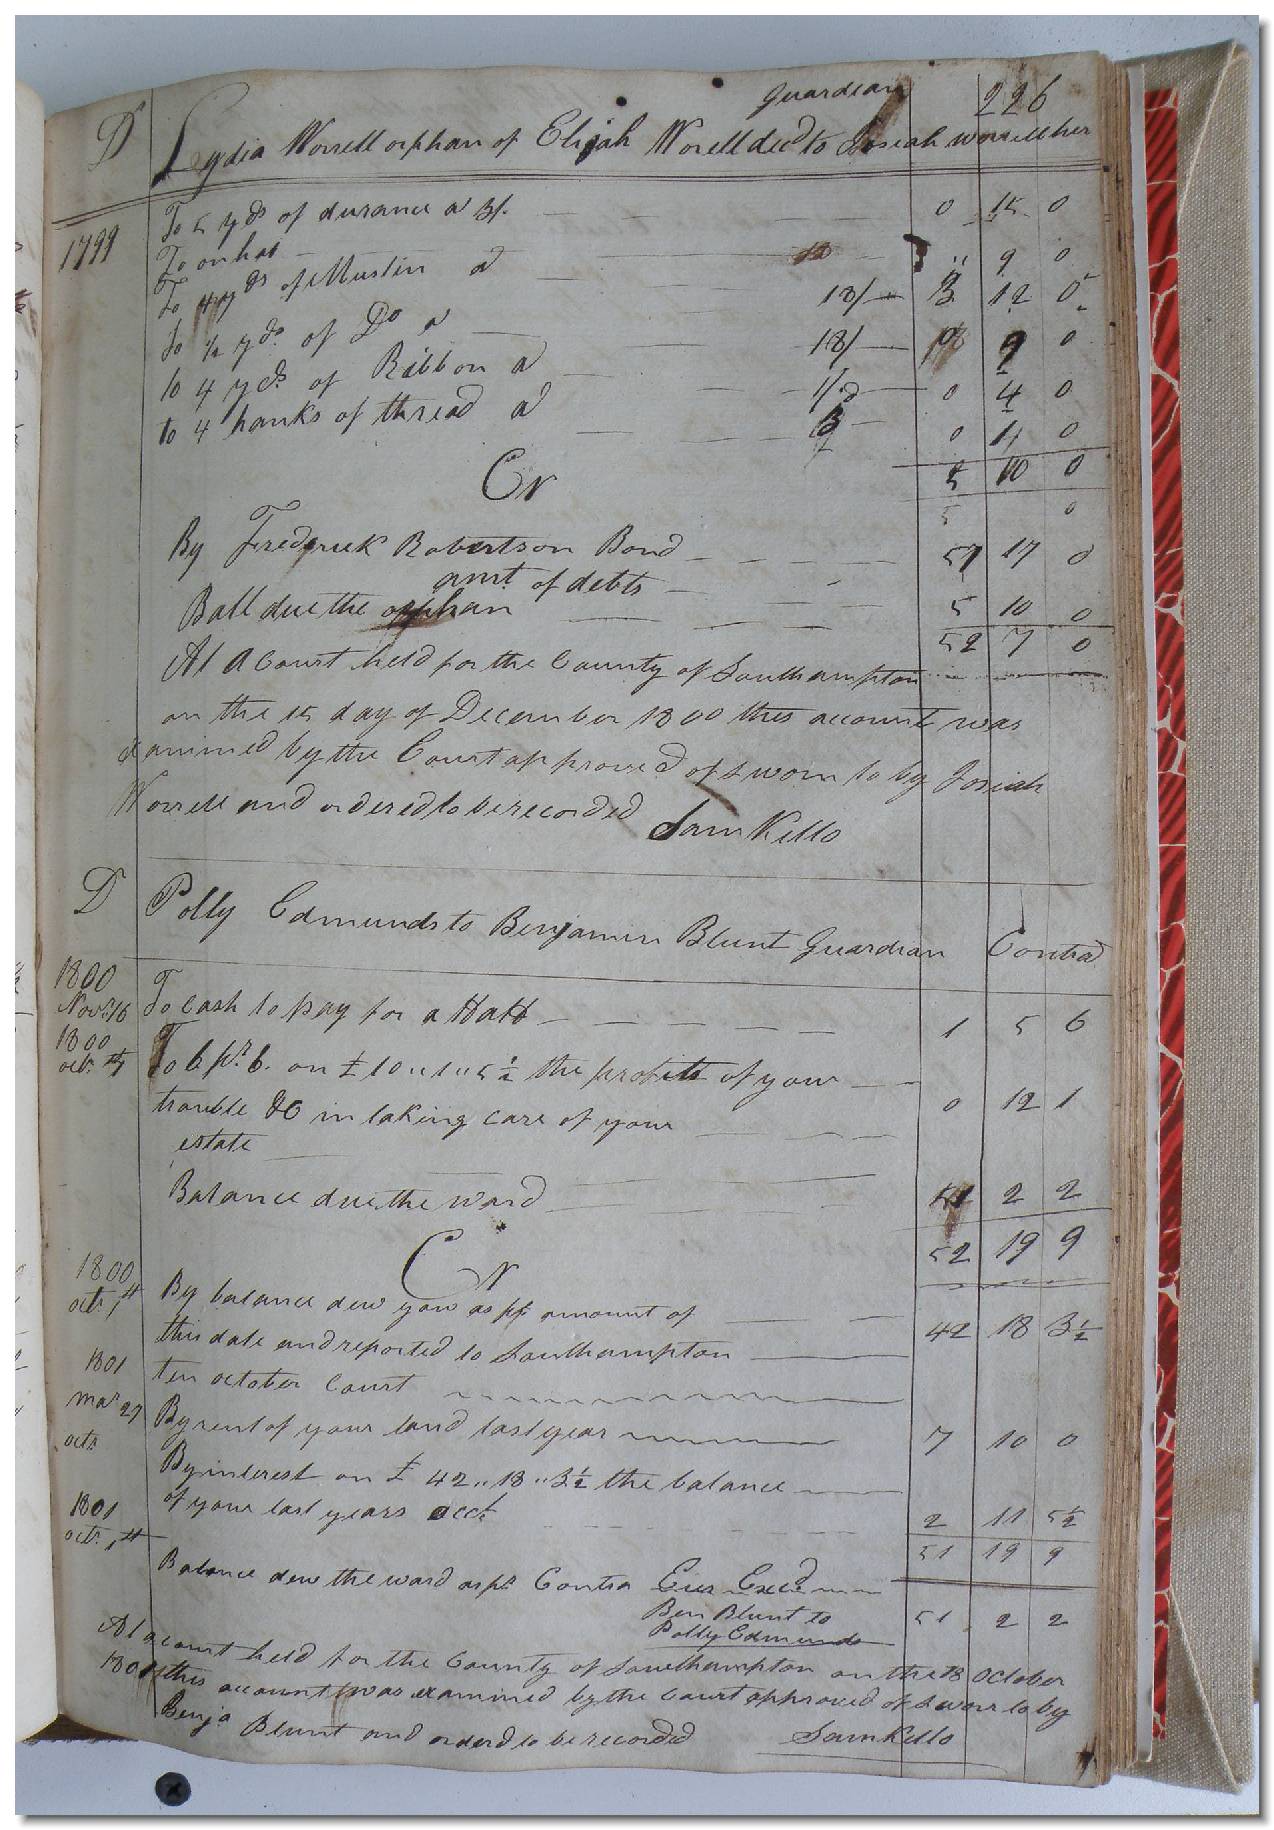 Guardian 226
D Lydia Worrell orphan of Elijah Worell decd to Josiah worrell her
1799 To 5 yds of durance a 3/. 0 15 0
To on hat " 9 0
To 4 yds of Muslin a 18/ 3 12 0
To ½ yds. of Do a 18/ 9 0
to 4 yds of Ribbon a 1/ 0 4 0
to 4 hanks of thread a 3 0 1 0
5 10 0
Cr 5 0
By Frederick Robertson Bond 57 17 0
amt of debts
Ball due the orphan 5 10 0
52 7 0
At a Court held for the County of Southampton
on the 15 day of December 1800 this account was
examined by the Court approved of sworn to by Josiah
Worrell and ordered to be recorded Sam Kello
D Polly Edmunds to Benjamin Blunt Guardian Contra
1800
Novr. 16 To cash to pay for a Hatt 1 5 6
1800
octr. To 6 pr. 6. on £ 10 " 1 " 5 ½ the profits of your
trouble &C in taking care of your 0 12 1
estate
Balance due the ward 51 2 2
Cr 52 19 9
1800
octr. 1st By balance dew you as pr amount of
this date and reported to Southampton 42 18 3½
ten october Court
1801
mar 27 By rent of your land last year 7 10 0
octr By interest on £ 42 " 18 " 3½ the balance
of your last years acct 2 11 5½
1801 51 19 9
octr. 1st Balance dew the ward as pr Contra Excd
Ben Blunt to 51 2 2
Polly Edmunds
At a court held for the County of Southampton on the 18 October
1801 this account was examined by the Court approved of sworn to by
Benja Blunt and orderd to be recorded Sam Kello